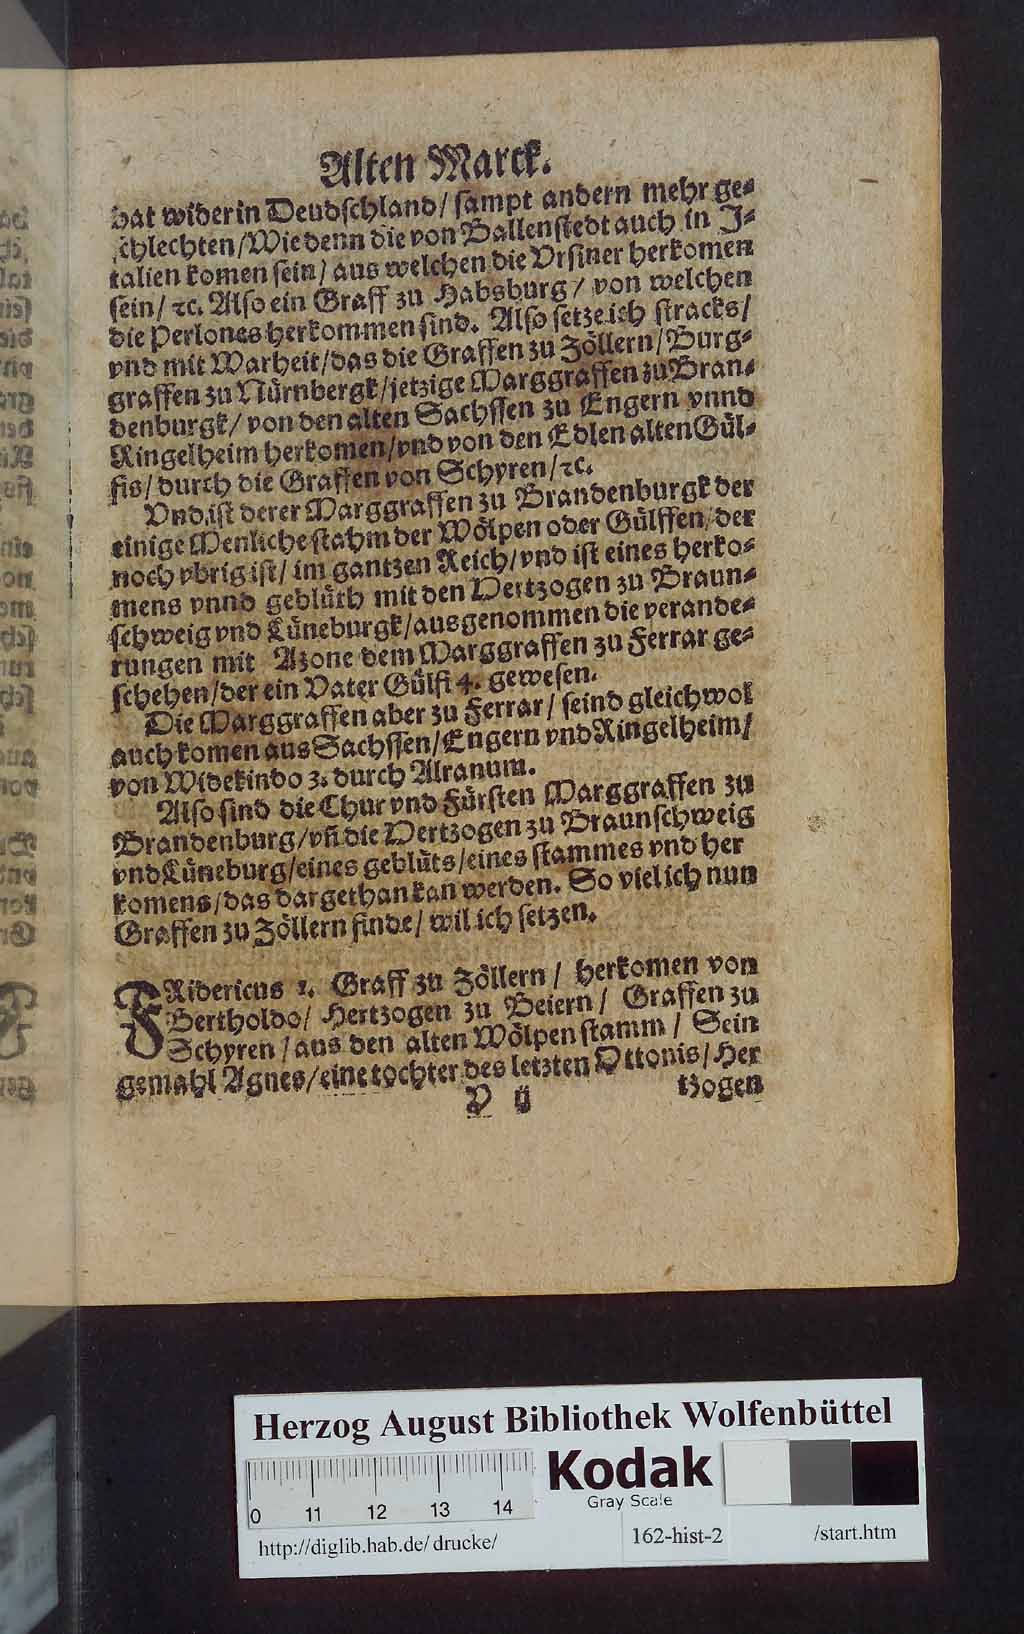 Alten Marck.
hat wider in Deudschland/ sampt andern mehr ge-
schlechten/ Wie denn die von Ballenstedt auch in J-
talien komen sein/ aus welchen die Vrsiner herkomen
sein/ ꝛc. Also ein Graff zu Habsburg/ von welchen
die Perlones herkommen sind. Also setze ich stracks/
vnd mit Warheit/ das die Graffen zu Zöllern/ Burg-
graffen zu Nürnbergk/ jetzige Marggraffen zu Bran-
denburgk/ von den alten Sachssen zu Engern vnnd
Ringelheim herkomen/ vnd von den Edlen alten Gül-
fis/ durch die Graffen von Schyren/ ꝛc.
Vnd ist derer Marggraffen zu Brandenburgk der
einige Menliche stahm der Wölpen oder Gülffen/ der
noch vbrig ist/ im gantzen Reich/ vnd ist eines herko-
mens vnnd geblüth mit den Hertzogen zu Braun-
schweig vnd Lüneburgk/ ausgenommen die verande-
rungen mit Azone dem Marggraffen zu Ferrar ge-
schehen/ der ein Vater Gülfi 4. gewesen.
Die Marggraffen aber zu Ferrar/ seind gleichwol
auch komen aus Sachssen/ Engern vnd Ringelheim/
von Widekindo 3. durch Alranum.
Also sind die Chur vnd Fürsten Marggraffen zu
Brandenburg/ vñ die Hertzogen zu Braunschweig
vnd Lüneburg/ eines geblüts/ eines stammes vnd her
komens/ das dargethan kan werden. So viel ich nun
Graffen zu Zöllern finde/ wil ich setzen.
FRidericus 1. Graff zu Zöllern/ herkomen von
Bertholdo/ Hertzogen zu Beiern/ Graffen zu
Schyren/ aus den alten Wölpen stamm/ Sein
gemahl Agnes/ eine tochter des letzten Ottonis/ Her
V ij tzogen
Herzog August Bibliothek Wolfenbüttel
Kodak
Gray Scale
0 11 12 13 14
http://diglib.hab.de/ drucke/ 162-hist-2 /start.htm